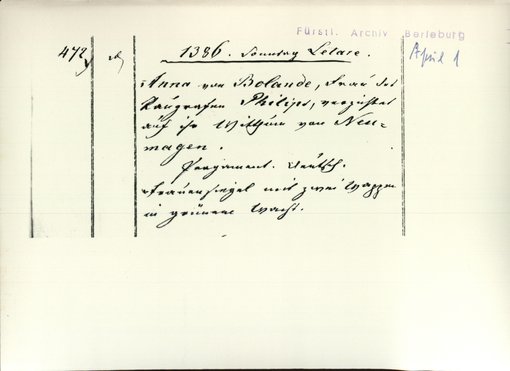 Fürstl. Archiv Berleburg
472) 1386. Sonntag Letare. April 1
Anna von Bolande, Frau des
Raugrafen Philips, verzichtet
auf ihr Witthum von Neu-
magen.
Pergament. Deutsch.
Frauensiegel mit zwei Wappen
in grünem Wachs.